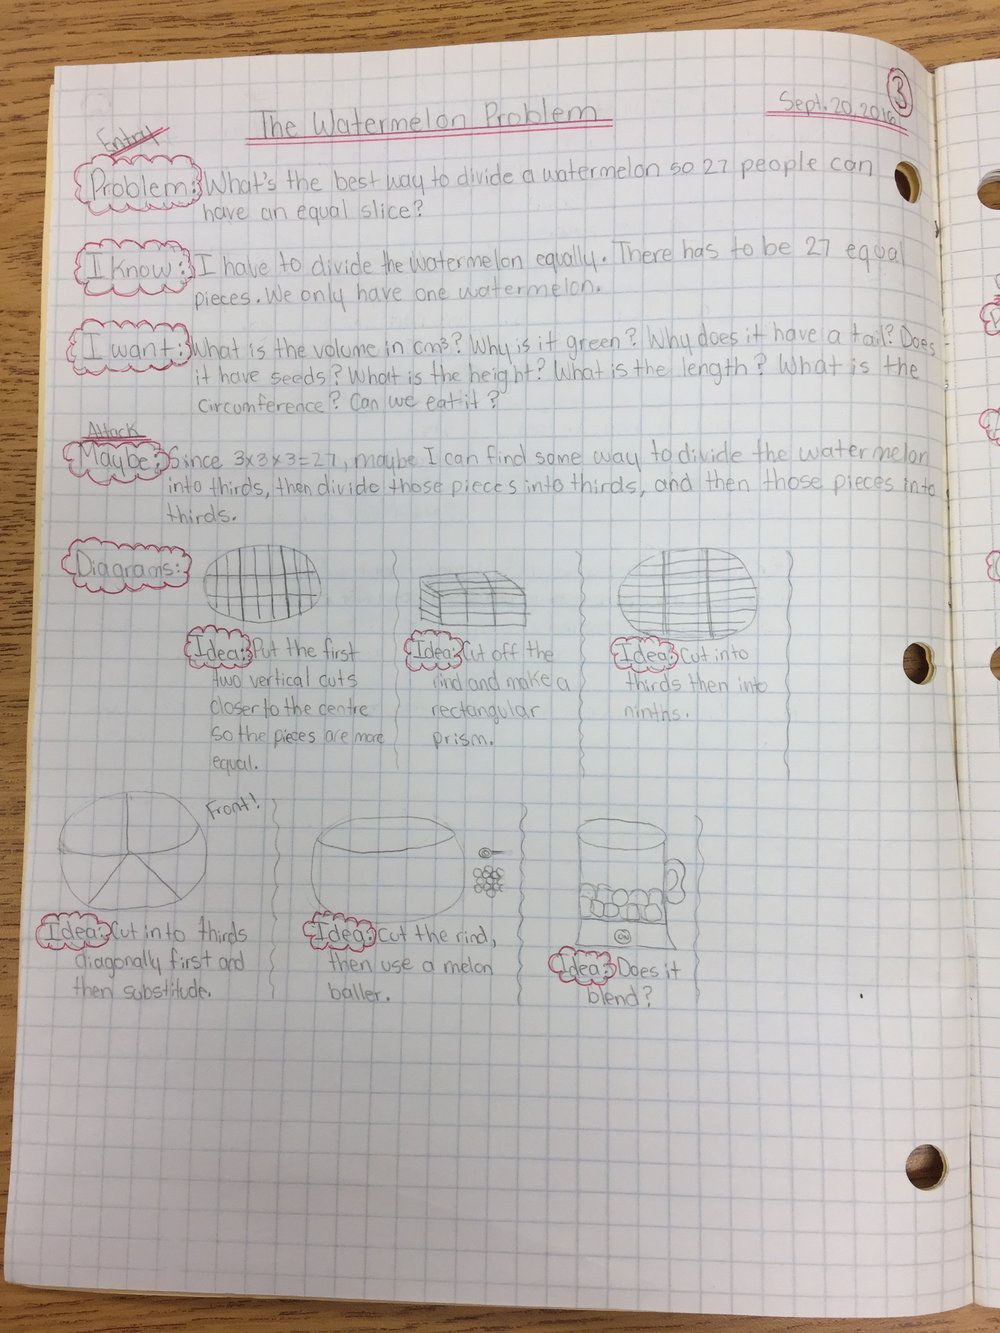 3
Sept. 20, 2016
The Watermelon Problem
Entry
Problem: What's the best way to divide a watermelon so 27 people can
have an equal slice?
I Know: I have to divide the watermelon equally. There has to be 27 equal
pieces. We only have one watermelon.
I want: What is the volume in cm³? Why is it green? Why does it have a tail? Does
it have seeds? What is the height? What is the length? What is the
circumference? Can we eat it?
Attack
Maybe: Since 3x3x3=27, maybe I can find some way to divide the watermelon
into thirds, then divide those pieces into thirds, and then those pieces into
thirds.
Diagrams:
Idea: Put the first
two vertical cuts
closer to the centre
so the pieces are more
equal.
Idea: Cut off the
rind and make a
rectangular
prism.
Idea: Cut into
thirds then into
ninths.
Front!
Idea: Cut into thirds
diagonally first and
then substitude.
Idea: Cut the rind,
then use a melon
baller.
ON
Idea: Does it
blend?